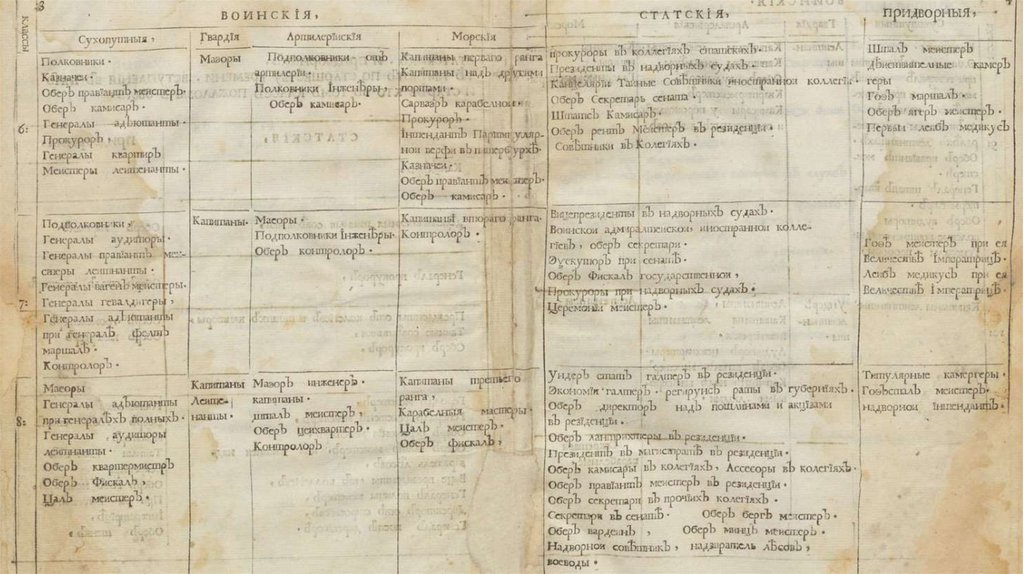 8
ВОИНСКІЯ,
СТАТСКІЯ,
ПРИДВОРНЫЯ,
Классы
Сухопутныя,
Гвардія
Артилерїискія
Морскія
6:
Полковники.
Казначеи.
Оберъ правїантъ меистеръ
Оберъ камисаръ.
Генералы адьютанты.
Прокуроръ,
Генералы квартир
Меистеры леитенанты.
Маэоры
Подполковники отъ
артилерїи
Полковники Інженѣры,
Оберъ камисаръ.
Капитаны перваго ранга
Капитаны надъ другими
портами.
Сарваэръ карабелнои
Прокуроръ.
Інтендантъ Партикуляр-
нои верфи въ питербурхѣ
Казначеи.
Оберъ правїантъ меистеръ.
Оберъ камисаръ.
прокуроры въ коллегїяхъ статскихъ.
Президенты въ надворныхъ судахъ.
Канцелярїи Таиные Совѣтники иностраннои коллегїи
Оберъ Секретаръ сената.
Штатсъ Камисаръ.
Оберъ рентъ Меистеръ въ резиденцїи.
Совѣтники въ Колегїяхъ.
Шталъ меистеръ
Дѣиствителные камер
геры
Гофъ маршалъ.
Оберъ ягеръ меистеръ.
Первыи леибъ медикусъ
7:
Подполковники,
Генералы аудиторы.
Генералы правїантъ меи-
стеры леитнанты.
Генералы вагенъ меистеры.
Генералы гевалдїгеры,
Генералы адъютанты
при генералѣ фелтъ
маршалѣ.
Контролоръ.
Капитаны.
Маеоры.
Подполковники Інженѣры.
Оберъ контролоръ.
Капитаны втораго ранга.
Контролоръ.
Вицепрезиденты въ надворныхъ судахъ.
Воинскои адмиралтеискои иностраннои колле-
гїевъ, оберъ секретари.
Эѯекуторъ при сенатѣ.
Оберъ Фискалъ государственнои,
Прокуроры при надворныхъ судахъ.
Церемонїи меистеръ.
Гофъ меистеръ при ея
Величествѣ Імператрицѣ.
Леибъ медикусъ при ея
Величествѣ Імператрицѣ
8:
Маеоры
Генералы адъютанты
при генералѣхъ полныхъ.
Генералы аудиторы
леитнанты.
Оберъ квартермистръ
Оберъ Фискалъ,
Цалъ меистеръ.
Капитаны
Леите-
нанты.
Маэоръ инженеръ.
капитаны.
шталъ меистеръ,
Оберъ цеихвартеръ.
Контролоръ
Капитаны третьего
ранга,
Карабелныя мастеры
Цалъ меистеръ.
Оберъ фискалъ,
Ундеръ статъ галтеръ въ резиденцїи.
Экономїи галтеръ. регирунсъ раты въ губернїяхъ.
Оберъ директоръ надъ пошлинами и акцызами
въ резїденцїи.
Оберъ лантрихтеры въ резиденцїи.
Президентъ въ магистратѣ въ резиденцїи.
Оберъ камисары въ колегїяхъ, Ассесоры въ колегїяхъ.
Оберъ правїантъ меистеръ въ резиденцїи.
Оберъ секретари въ протчихъ колегїяхъ.
Секретари въ сенатѣ. Оберъ бергъ меистеръ.
Оберъ вардеинъ, Оберъ минцъ меистеръ.
Надворнои совѣтникъ, надзиратель лѣсовъ,
воеводы.
Титулярные камергеры.
Гофъсталъ меистеръ.
надворнои інтендантъ.